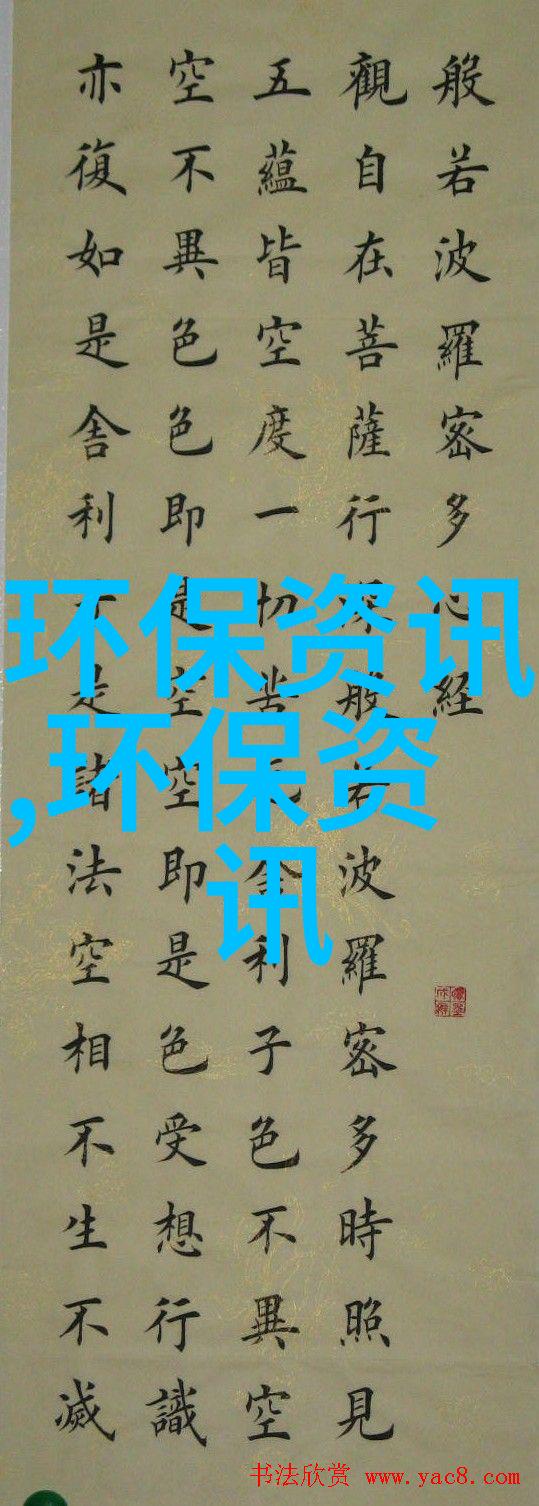 般若波羅密多心経
觀自在菩薩行般若波羅密多時照見
五蘊皆空度一切苦舍利子色不異空
空不異色色即是空空即是色受想行識
亦復如是舍利是諸法空相不生不滅
环保资讯
,环保资
讯
书法欣赏 www.yac8.com